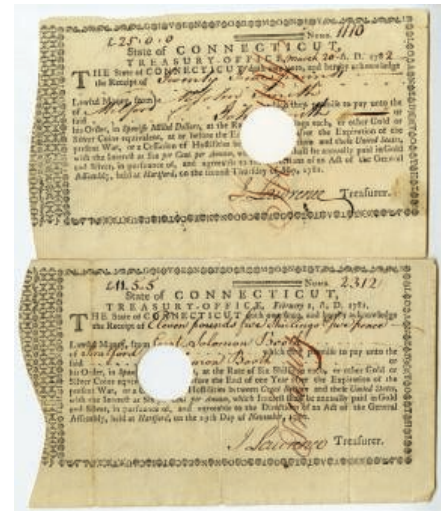 £25.0.0 Numb. 1110
State of CONNECTICUT,
TREASURY-OFFICE, March 20 A. D. 1782
THE State of CONNECTICUT doth owe, and hereby acknowledge
the Receipt of Twenty
Lawful Money, from Smith
of Milford which they promise to pay unto the
Smith or
his Order, in Spanish Milled Dollars, at the Ra each, or other Gold or
Silver Coin equivalent, at or before the E after the Expiration of the
present War, or a Cessation of Hostilities be and these United States,
with the Interest at Six per Cent per Annum, w shall be annually paid in Gold
and Silver, in pursuance of, and agreeable to ns of an Act of the General
Assembly, held at Hartford, on the second Thursday of May, 1781.
J Lawrence Treasurer.
£11.5.5 Numb. 2312
State of CONNECTICUT,
TREASURY-OFFICE, February 1, A. D. 1781,
THE State of CONNECTICUT doth owe, and hereby acknowledge
the Receipt of Eleven pounds five Shillings & five pence
Lawful Money, from Capt Solomon Booth
of Stratford which they promise to pay unto the
Solomon Booth or
his Order, in Span s, at the Rate of Six Shillings each, or other Gold or
Silver Coin equiva before the End of one Year the Expiration of the
present War, or a C Hostilities between Great Britain and these United States,
with the Interest at Six Cent per Annum, which Interest shall be annually paid in Gold
and Silver, in pursuance of, and agreeable to the Directions of an Act of the General
Assembly, held at Hartford, on the 29th Day of November,
J Lawrence Treasurer.